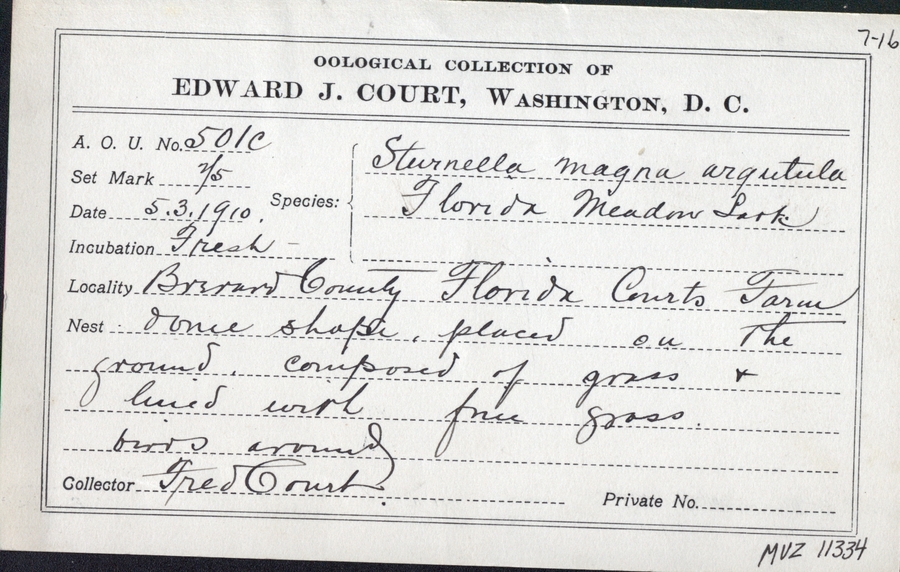 7-16
OOLOGICAL COLLECTION OF
EDWARD J. COURT, WASHINGTON, D. C.
A. O. U. No. 501c
Set Mark 2/5
Date 5.3.1910.
Incubation Fresh -
Species: Sturnella magna argutula
Florida Meadow Lark
Locality Brevard County Florida Courts Farm
Nest dome shape, placed on the
ground. composed of grass +
lined with fine grass.
birds around
Collector Fred Court.
Private No.
MVZ 11334